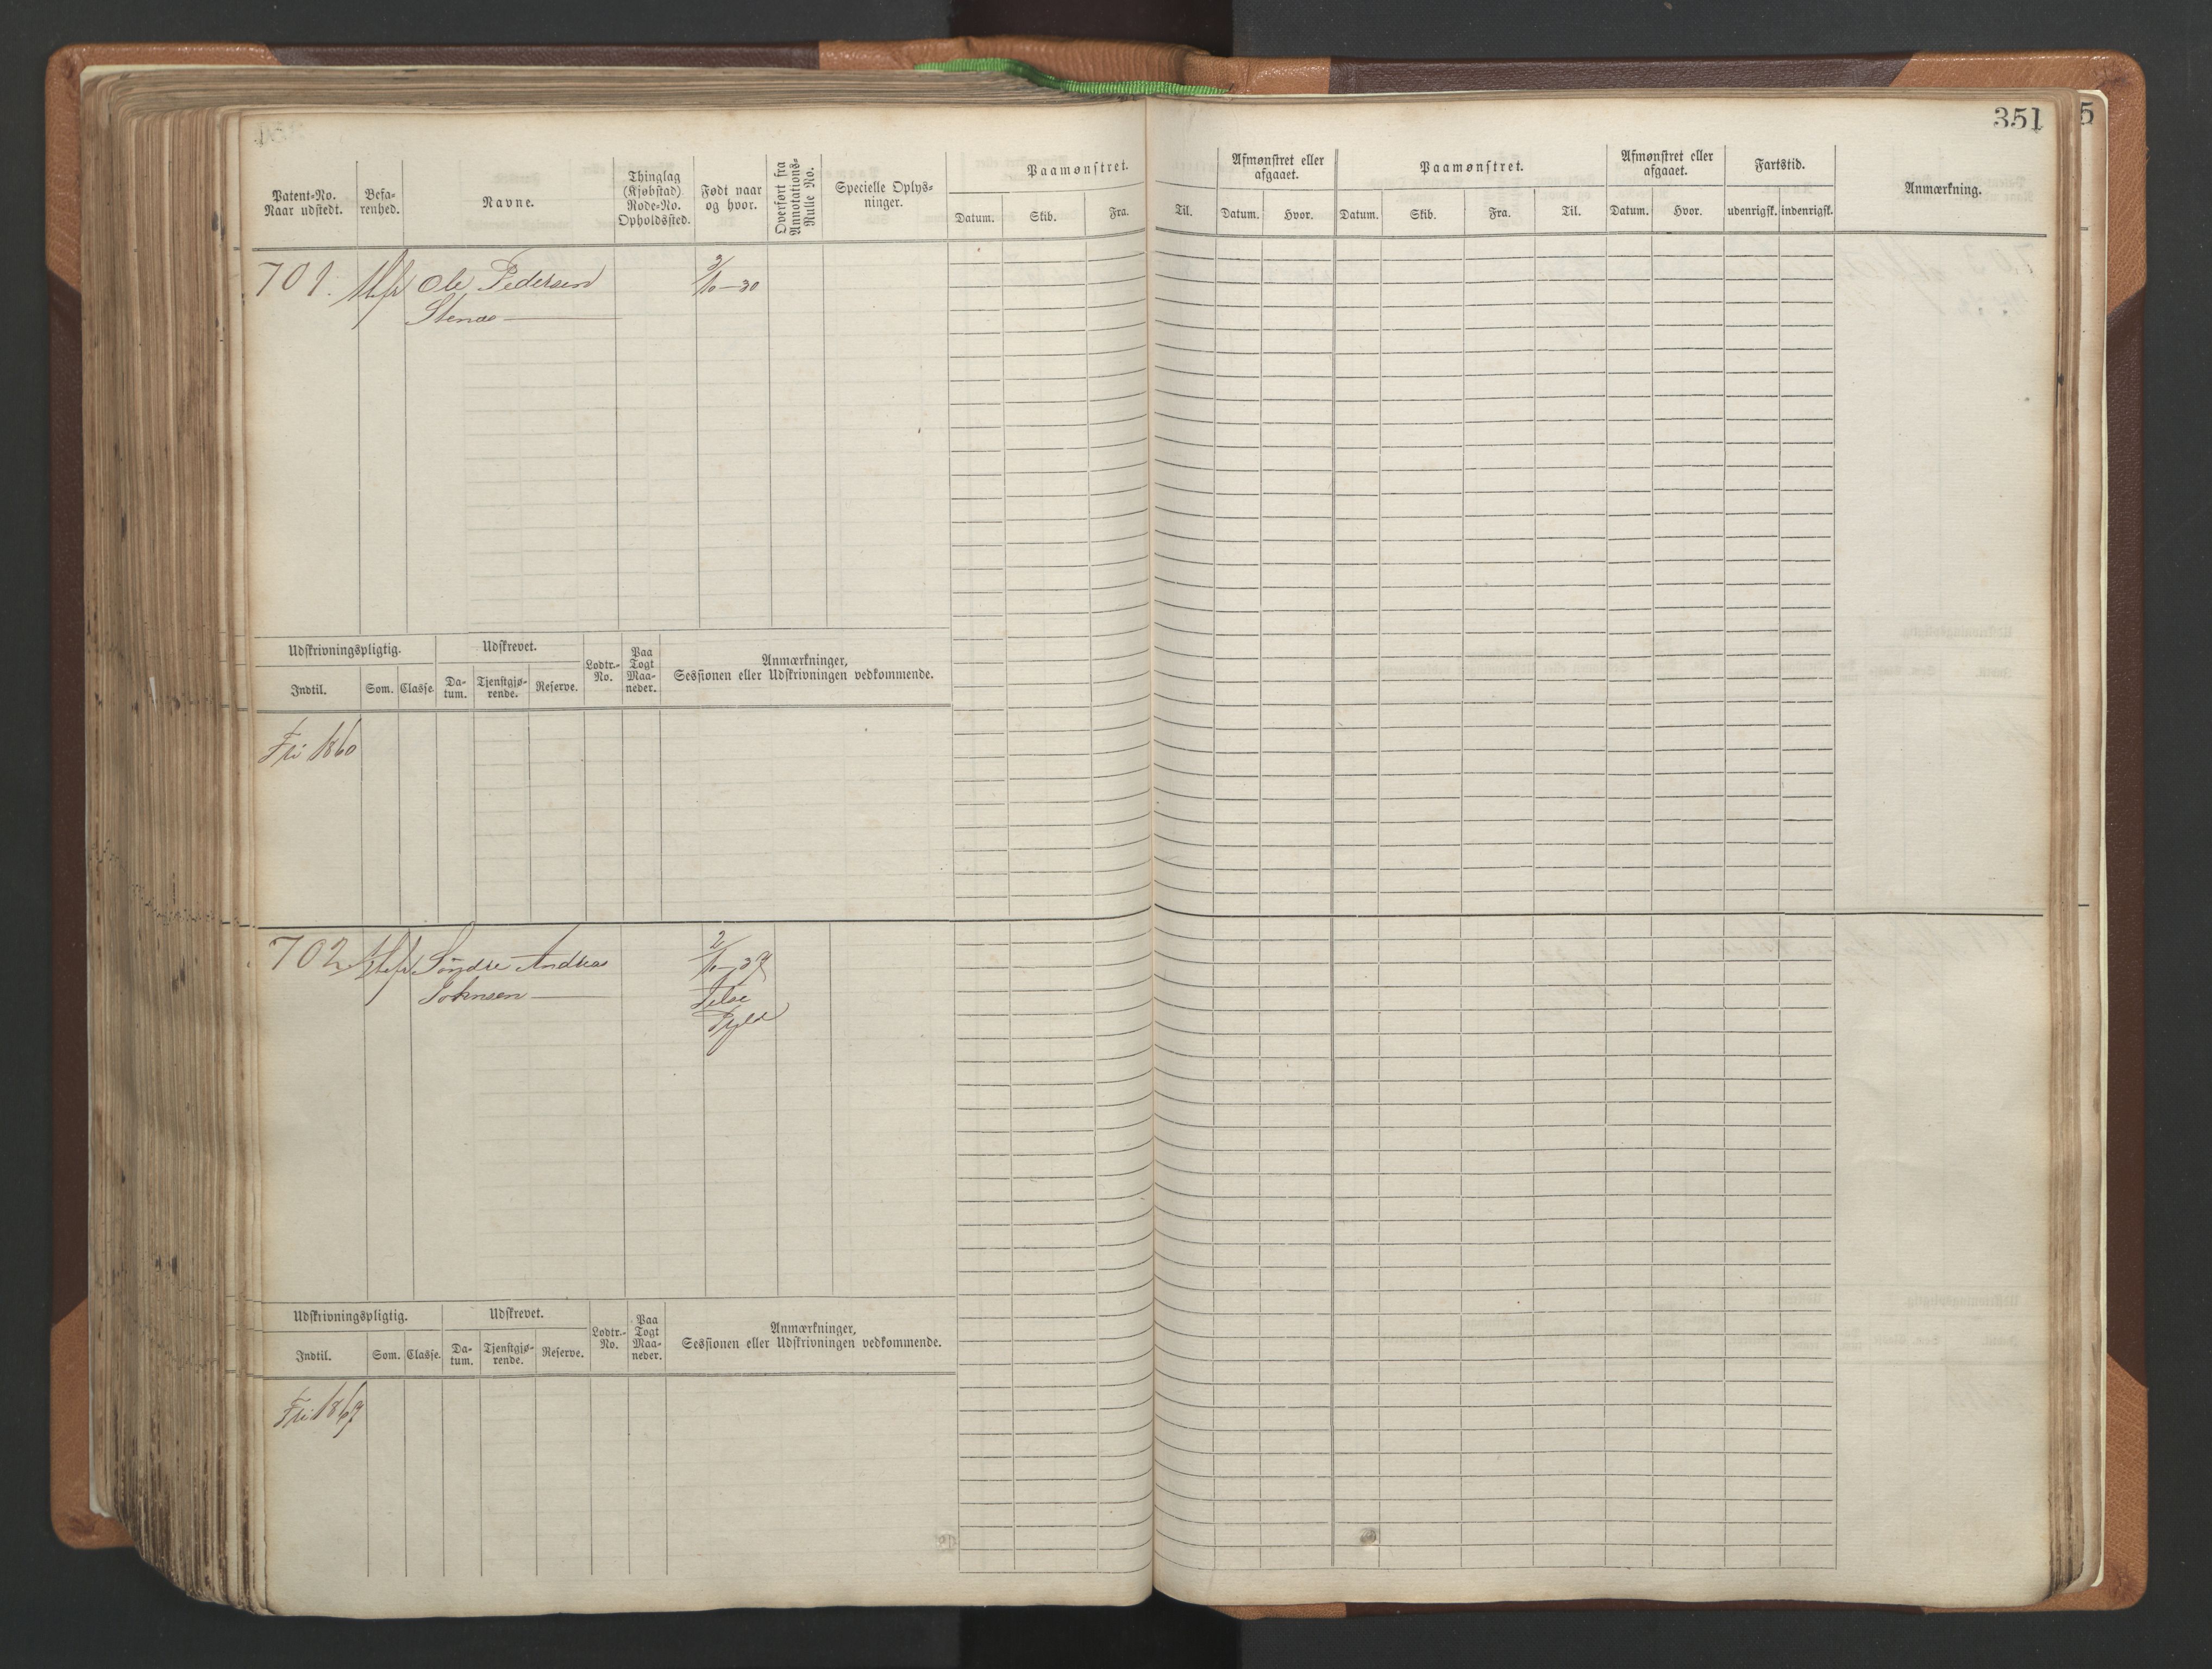 351
5
Patent-No. Naar udstedt.
Befa-
renhed.
Navne.
Thinglag
(Kjøbstad)
Rode-No.
Opholdssted.
Født naar
og hvor.
Overført fra
Annotations-
Rulle No.
Specielle Oplys-
ninger.
Paamønstret.
Datum. Skib. Fra.
Til.
Afmønstret eller
afgaaet.
Datum. Hvor.
Paamønstret.
Datum. Skib. Fra. Til.
Afmønstret eller
afgaaet.
Datum. Hvor.
Fartstid.
udenrigsk. indenrigsk.
Anmærkning.
701. Ole Pedersen 3/10-30
Stenao
Udskrivningspligtig. Udskrevet.
Lodtr.-
No.
Paa
Togt
Maa-
neder.
Anmærkninger,
Sessionen eller Udskrivningen vedkommende.
Indtil. Som. Classe.
Da-
tum.
Tjenstgjø-
rende.
Reserve.
Fri 1860
702 Söndre Andreas 2/10-37
Johnsen
Udskrivningspligtig. Udskrevet.
Lodtr.-
No.
Paa
Togt
Maa-
neder.
Anmærkninger,
Sessionen eller Udskrivningen vedkommende.
Indtil. Som. Classe.
Da-
tum.
Tjenstgjø-
rende.
Reserve.
Fri 1867